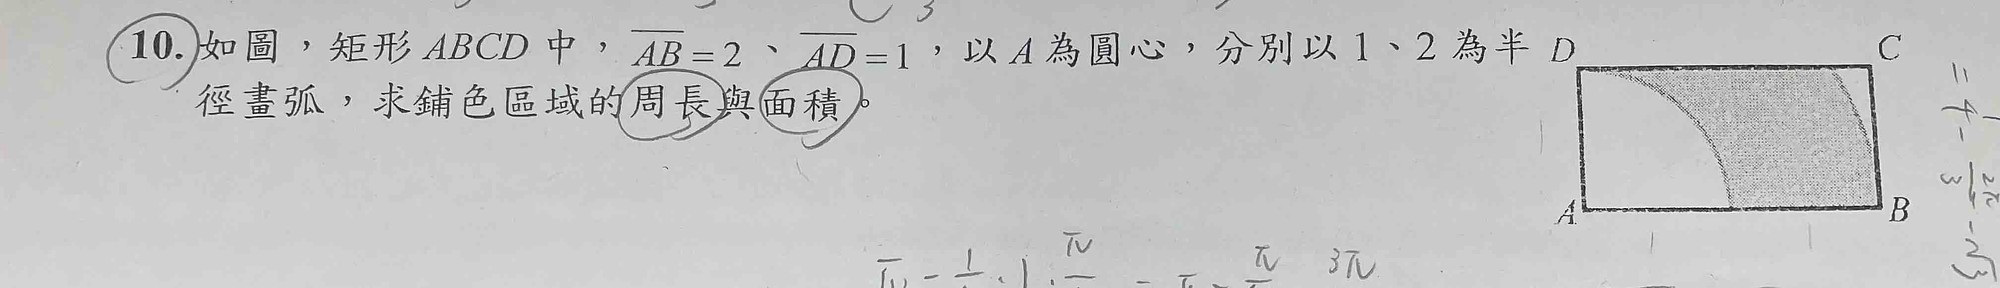 10. 如圖，矩形 ABCD 中，AB = 2、AD = 1，以 A 為圓心，分別以 1、2 為半
徑畫弧，求鋪色區域的周長與面積。
D
C
A
B
1
1
3π